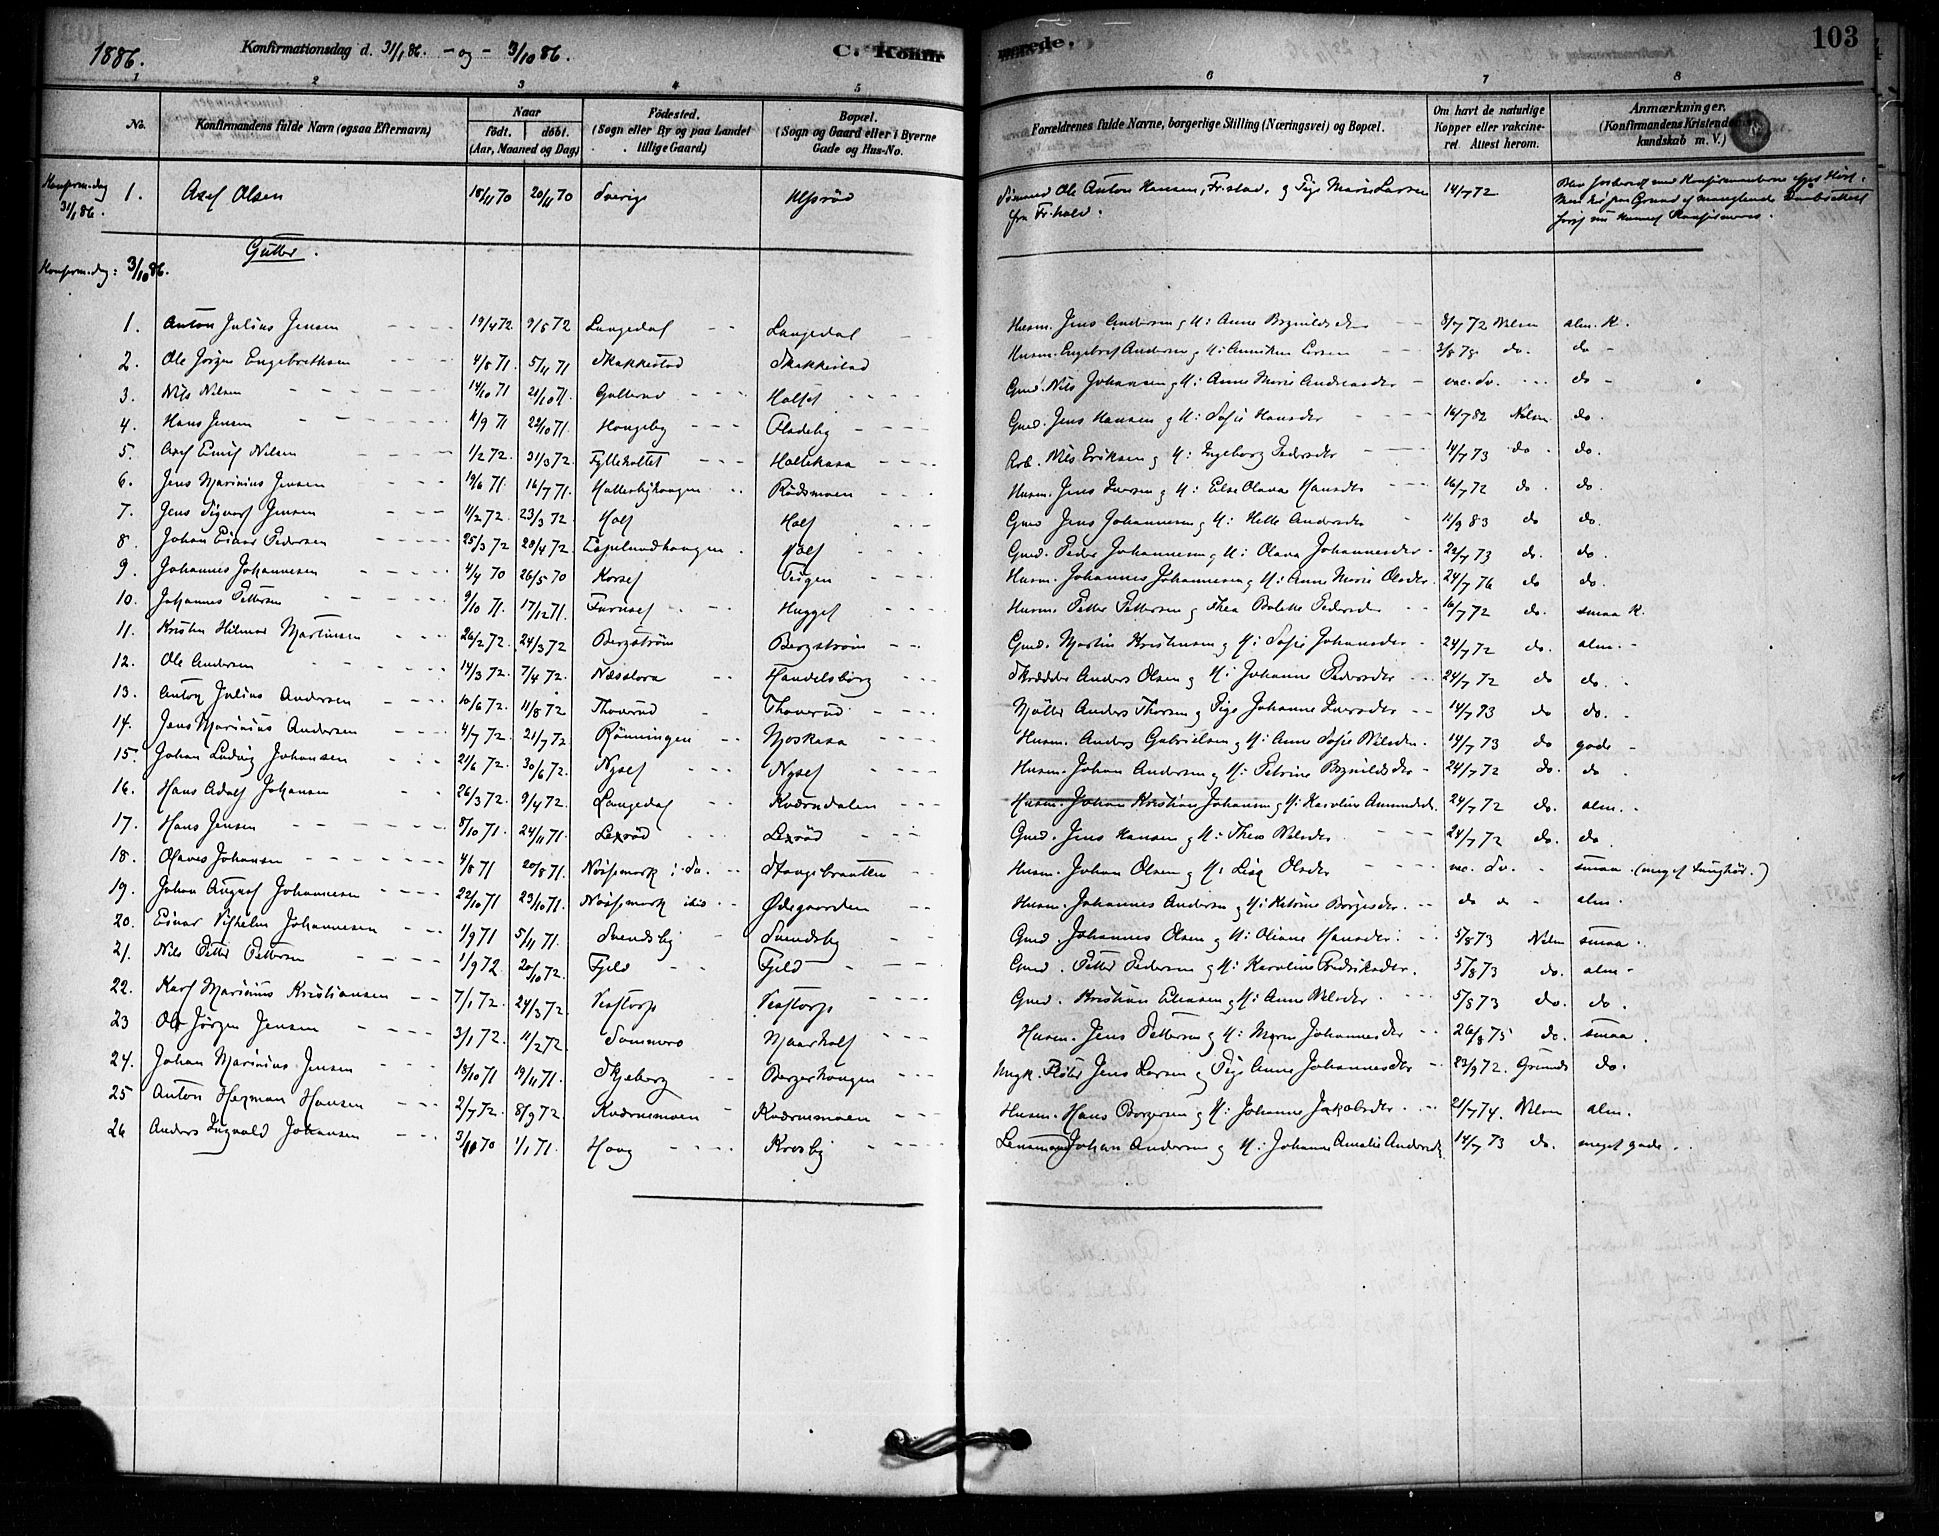 1886. Konfirmationsdag d. 31/1 86. - og - 3/10 86. C. Konfirmerede. 103
1 2 3 4 5 6 7 8
No. Konfirmandens fulde Navn (ogsaa Efternavn) Naar født. døbt. (Aar, Maaned og Dag) Fødested. (Sogn eller By og paa Landet tillige Gaard) Bopæl. (Sogn og Gaard eller i Byerne Gade og Hus-No. Forældrenes fulde Navne, borgerlige Stilling (Næringsvei) og Bopæl. Om havt de naturlige Kopper eller vakcineret. Attest herom. Anmærkninger. (Konfirmandens Kristendomskundskab m. V.)
Konfirm.dag 31/1 86. 1. Axel Olsen 18/11 70 20/11 70 Sverige Ulfsrød Sømand Ole Anton Hansen, Fr.stad, og Pige Marie Larsen fra Fr.hald. 14/7 72
Gutter.
Konfirm.dag: 3/10 86.
1. Anton Julius Jensen 19/4 72 9/5 72 Langedal Langedal Husm. Jens Andersen og H: Anne Brynildsdr 8/7 72 Nilsen alm. K.
2. Ole Jørgen Engebrethsen 4/8 71 5/11 71 Skakkestad Skakkestad Husm. Engebret Andersen og H: Anniken Larsen 3/8 78 do. do
3. Nils Nilsen 14/10 71 21/10 71. Gullerud Holset Gmd. Nils Johansen og H: Anne Marie Andreasdr vac. Sv. do
4. Hans Jensen 11/9 71 22/10 71. Haugeby Fladeby Gmd. Jens Hansen og H: Sofie Hansdr 16/7 82 Nilsen do.
5. Axel Emil Nilsen 1/2 72. 31/3 72. Fylleholtet Hollekasa Arb. Nils Eriksen og H: Ingeborg Pedersdr 14/7 73 do. do.
6. Jens Marinius Jensen 19/6 71. 16/7 71. Hallerbyhaugen Rødsmoen Husm. Jens Iversen og H: Else Olava Hansdr 16/7 72 do do.
7. Jens Sigvart Jensen 11/2 72. 23/3 72. Holt Holt Gmd Jens Johannesen og H: Helle Andersdr 11/9 83 do do.
8. Johan Einar Pedersen 25/3 72 28/4 72. Espelundhaugen Holt Gmd. Peder Johannesen og H: Olava Johannesdr. 22/7 73 do. do.
9. Johannes Johannesen 4/4 70 26/5 70 Korset Teigen Husm. Johannes Johannesen og H: Anne Marie Olsdr. 24/7 76 do do.
10. Johannes Pettersen 9/10 71. 17/12 71. Furuset Hugget Husm Petter Pettersen og Thea Bolette Pedersdr 16/7 72 do. smaa K.
11. Kristen Hilmar Martinsen 26/2 72. 24/3 72 Bergstrøm Bergstrøm Gmd. Martin Kristensen og H: Sofie Johansdr 24/7 72 do. alm.
12. Ole Andersen 14/3 72. 7/4 72. Næsslora Handelsborg Skrædder Anders Olsen og H: Johanne Pedersdr 24/7 72 do do.
13. Anton Julius Andersen 10/6 72. 11/8 72 Thaverud Thaverud Møller Anders Thorsen og Pige Johanne Iversdr 14/7 73 do do.
14. Jens Marinius Andersen 4/7 72. 21/7 72 Rønningen Moskasa Husm. Anders Gabrielsen og H: Anne Sofie Nilsdr. 14/7 73 do gode
15. Johan Ludvig Johansen 21/6 72. 30/6 72. Nyset Nyset Husm. Johan Andersen og H: Petrine Brynildsdr 24/7 72 do. do
16. Hans Adolf Johansen 26/3 72. 9/4 72. Langedal Kværndalen Husm. Johan Kristian Johansen og H: Karoline Amundsdr. 24/7 72 do. alm.
17. Hans Jensen 8/10 71. 24/11 71. Lexrød Lexrød Gmd. Jens Hansen og H: Thea Nilsdr 24/7 72 do. do.
18. Olaves Johansen 4/8 71 20/8 71. Nøssemark i Sv. Stangebraatten Husm. Johan Olsen og H: Lisa Olsdr vac. Sv. smaa (meget tunghør.)
19. Johan August Johannesen 22/10 71 29/10 71. Nøssemark ibid Ødegaarden Husm. Johannes Andersen og H: Katrine Borgesdr. do do alm.
20. Einar Vilhelm Johannesen 1/9 71 5/11 71. Svendsby Svendsby Gmd. Johannes Olsen og H: Oliane Hansdr. 5/8 73 Nilsen smaa.
21. Nils Petter Pettersen 1/9 72. 20/10 72. Fjeld Fjeld Gmd. Petter Pedersen og H: Karoline Fredriksdr. 5/8 73 do. alm
22. Karl Marinius Kristiansen 7/1 72. 24/3 72 Vestorp Vestorp Gmd. Kristian Eliassen og H: Anne Nilsdr. 5/8 73 do. do.
23 Ole Jørgen Jensen 3/1 72. 11/2 72. Sommero Maarholt Husm. Jens Pettersen og H: Maren Johannesdr 26/8 75 do. smaa.
24. Johan Marinius Jensen 18/10 71 19/11 71. Skjeberg Bergerhaugen Ungk. Fløter Jens Larsen og Pige Anne Johannesdr 23/9 72. Grundt do.
25 Anton Herman Hansen 2/7 72. 8/9 72 Kværnmoen Kværnmoen Husm. Hans Borgersen og H: Johanne Jakobsdr. 21/7 74. Nilsen alm.
26 Anders Ingvald Johansen 3/11 70 1/1 71. Haug Kroksby Lensmand Johan Andersen og H: Johanne Amalie Andersdr. 14/7 73 do. meget gode.